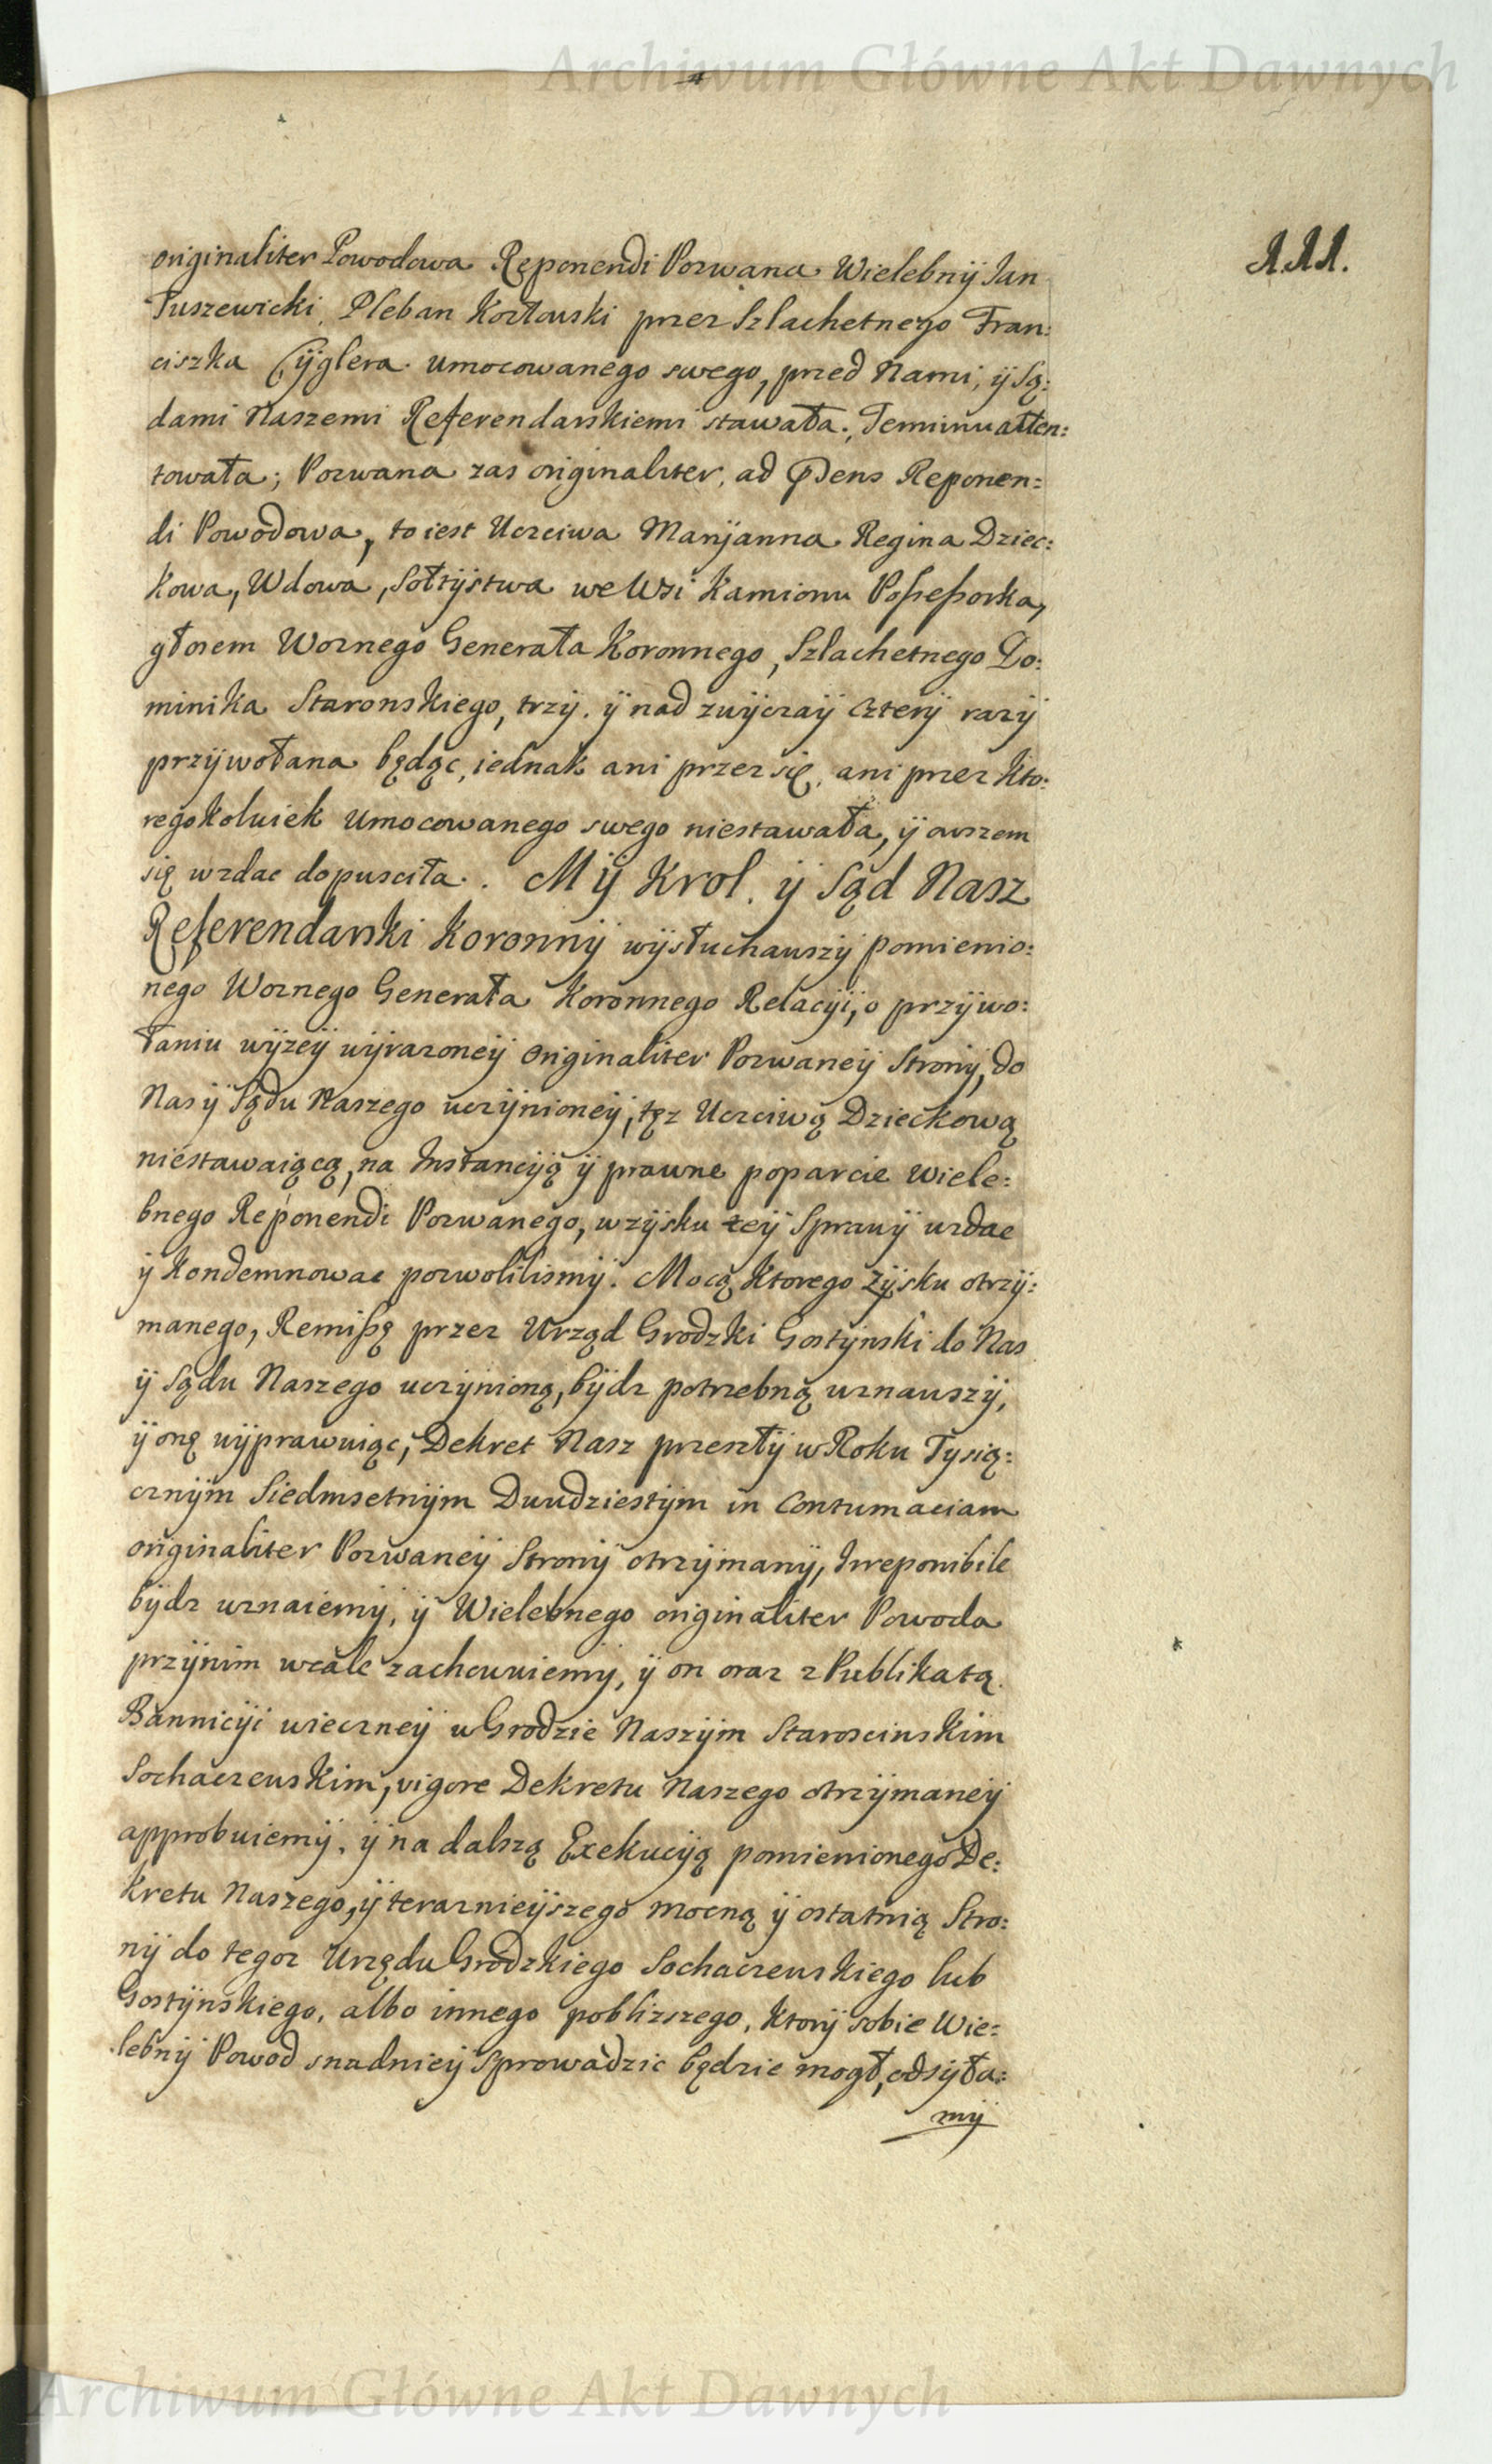 Archiwum Główne Akt Dawnych
111.
originaliter Powodowa Reponendi Pozwana Wielebnÿ Jan
Tuszewicki, Pleban Kozłowski przez Szlachetnego Fran:
ciszka Cÿglera umocowanego swego, przed Nami, ÿ Są:
dami Naszemi Referendarskiemi stawała, Terminu atten:
towała; Pozwana zas originaliter, ad Reponen:
di Powodowa, to iest Uczciwa Marÿanna Regina Dziec:
kowa, Wdowa, Sołtÿstwa we Wsi Kamionu Possessorka,
głosem Woznego Generała Koronnego, Szlachetnego Do:
minika Staronskiego, trzÿ, ÿ nad zwÿczaÿ czterÿ razÿ
przÿwołana będąc, iednak ani przez się, ani przez kto:
regokolwiek umocowanego swego niestawała, ÿ owszem
się wzdac dopusciła. Mÿ Krol, ÿ Sąd Nasz
Referendarski Koronnÿ wÿsłuchawszÿ pomienio:
nego Woznego Generała Koronnego Relacÿi, o przÿwo:
łaniu wÿzeÿ wÿrazoneÿ originaliter Pozwaneÿ Stronÿ, do
Nas ÿ Sądu Naszego uczÿnioneÿ, tęz Uczciwą Dzieckową
niestawaiącą, na Instancÿą ÿ prawne poparcie Wiele:
bnego Reponendi Pozwanego, w zÿsku teÿ Sprawÿ wzdac
ÿ kondemnowac pozwolilismÿ. Mocą ktorego zÿsku otrzÿ:
manego, Remissę przez Urząd Grodzki Gostÿnski do Nas
ÿ Sądu Naszego uczÿnioną, bÿdz potrzebną uznawszÿ,
ÿ onę wÿprawuiąc, Dekret Nasz przeszłÿ w Roku Tysią:
cznÿm Siedmsetnÿm Dwudziestÿm in Contumaciam
originaliter Pozwaneÿ Stronÿ otrzÿmanÿ, Irreponibile
bÿdz uznaiemÿ, ÿ Wielebnego originaliter Powoda
przÿnim wcale zachowuiemÿ, ÿ on oraz z Publikatą
Bannicÿi wieczneÿ w Grodzie Naszÿm Staroscinskim
Sochaczewskim, vigore Dekretu Naszego otrzÿmaneÿ
approbuiemÿ, ÿ na dalszą Exekucÿą pomienionego De:
kretu Naszego, ÿ teraznieÿszego mocną ÿ ostatnią Stro:
nÿ do tegoz Urzędu Grodzkiego Sochaczewskiego lub
Gostÿnskiego, albo innego poblizszego, ktorÿ sobie Wie:
lebnÿ Powod snadnieÿ sprowadzic będzie mogł, odsÿła:
mÿ
Archiwum Główne Akt Dawnych